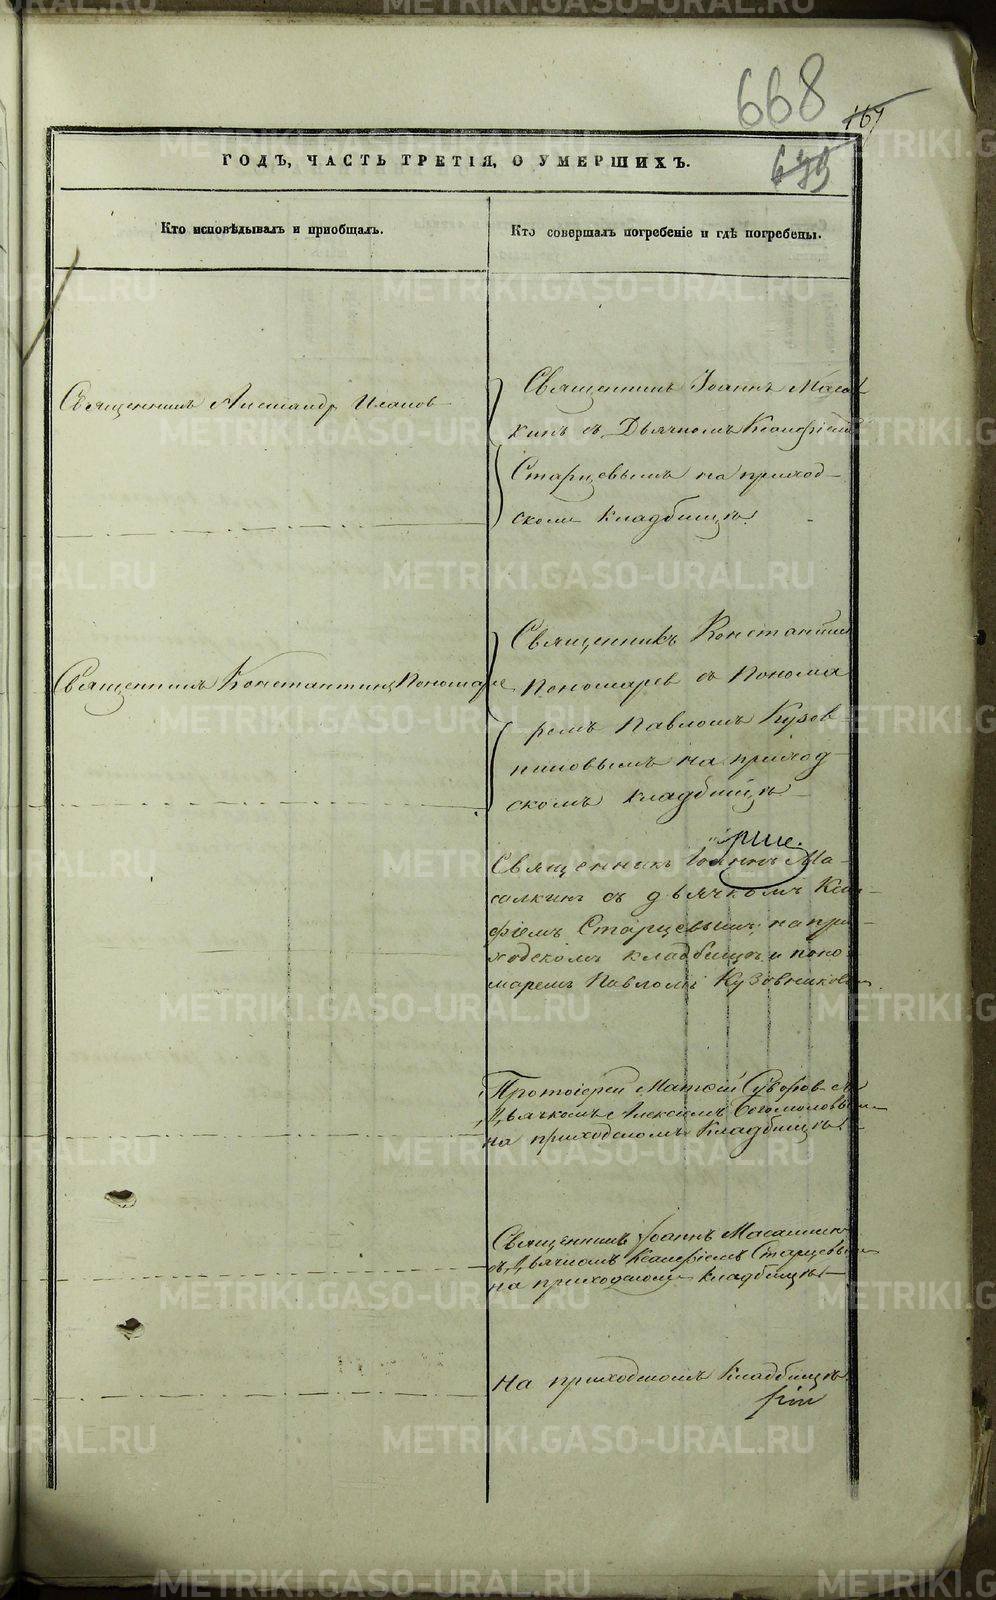 668
167
639
ГОДЪ, ЧАСТЬ ТРЕТІЯ, О УМЕРШИХЪ.
Кто исповѣдывалъ и приобщалъ.
Кто совершалъ погребеніе и гдѣ погребены.
Священникъ Александр
Священникъ Іоаннъ Маса
кинъ съ Дьячкомъ
Старцевымъ на приход
скомъ кладбищѣ.
Священникъ Константинъ Пономаре
Священникъ Константин
Пономарев съ Понома
ремъ Павломъ Кузов
никовымъ на приход
скомъ кладбищѣ
Священникъ Іоаннъ Ма-
салкин съ дьячкомъ
фіемъ Старцевымъ на при-
ходскомъ кладбищѣ и поно
маремъ Павломъ Кузовниковы
Протоіерей Матѳій Суворов съ
Дьячкомъ Алексѣемъ Богомоловым
на приходскомъ Кладбищѣ
Священникъ Іоаннъ Масалкин
съ Дьячкомъ Старцевым
на приходскомъ кладбищѣ
на приходскомъ Кладбищѣ
METRIKI.GASO-URAL.RU